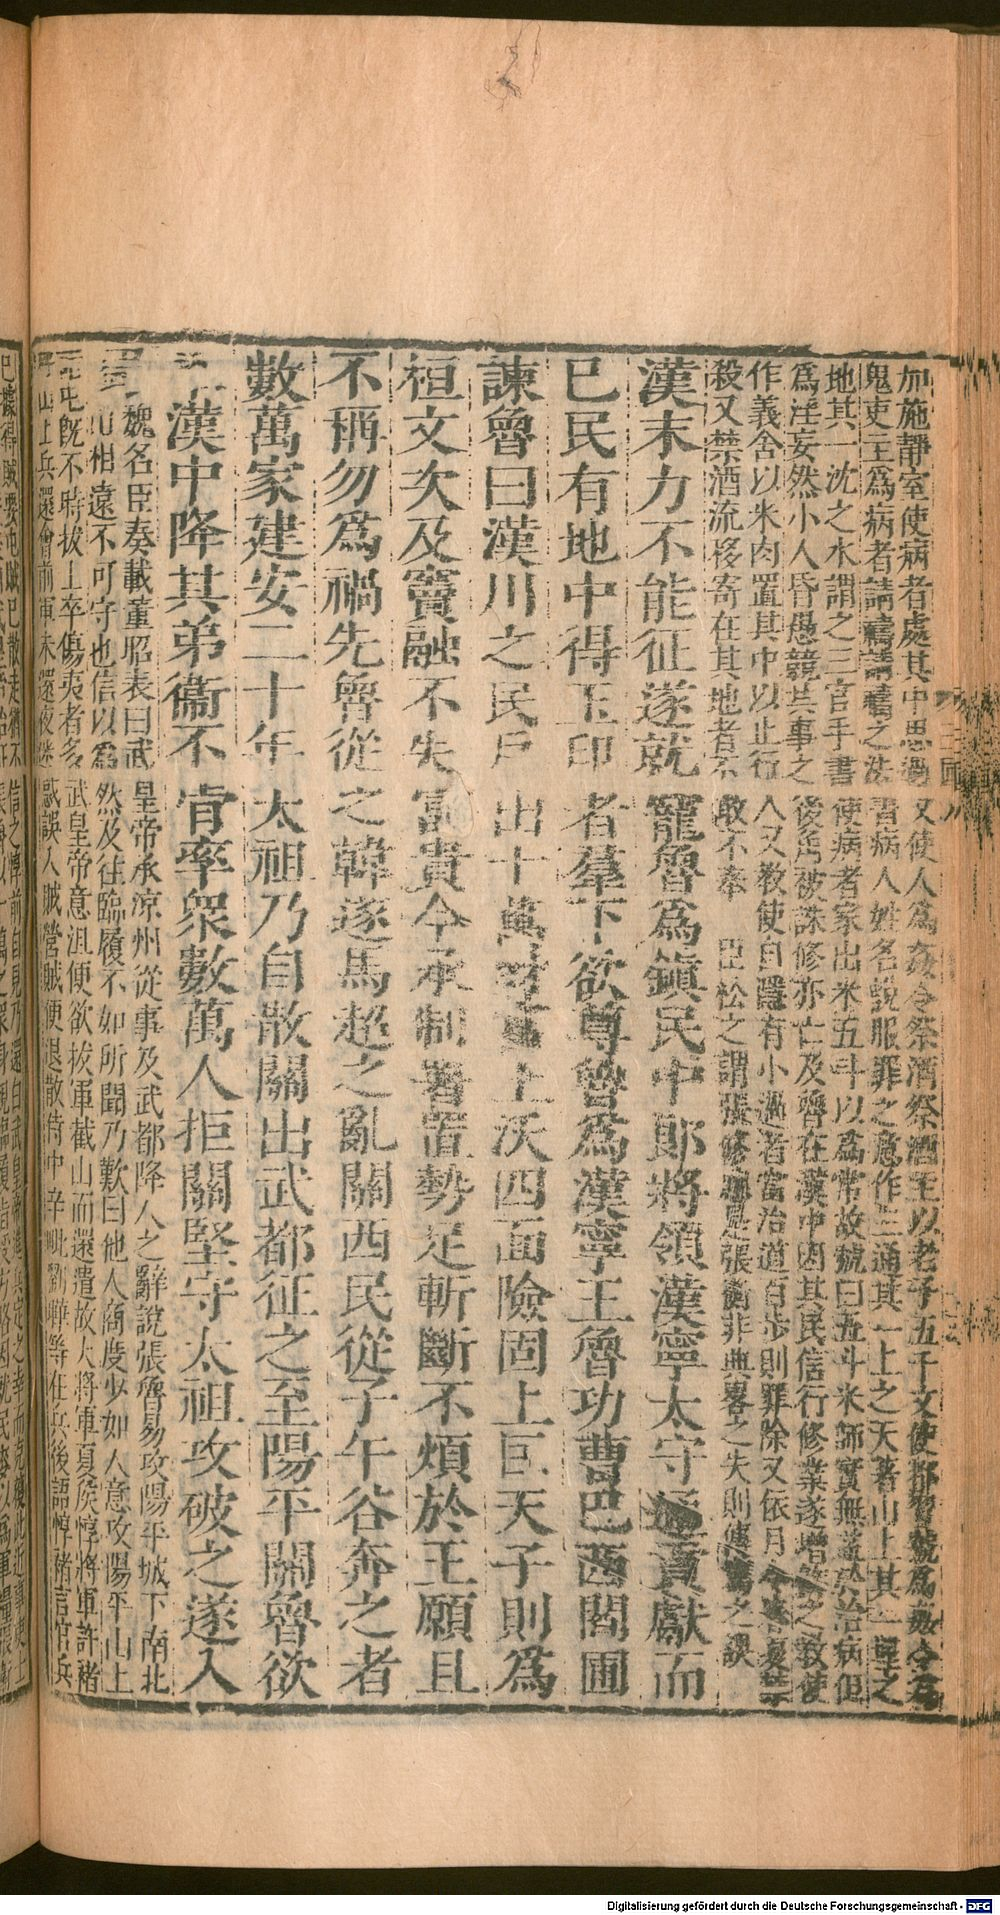 加施靜室使病者處其中思過又使人爲姦令祭酒祭酒主以老子五千文使都習號爲姦令爲
鬼吏主爲病者請禱請禱之法書病人姓名說服罪之意作三通其一上之天著山上其一埋之
地其一沈之水謂之三官手書使病者家出米五斗以爲常故號曰五斗米師實無益於治病但
爲淫妄然小人昏愚競共事之後角被誅修亦亡及魯在漢中因其民信行修業遂增飾之教使
作義舍以米肉置其中以止行人又教使自隱有小過者當治道百步則罪除又依月令春夏禁
殺又禁酒流移寄在其地者不敢不奉　臣松之謂張修應是張衡非典畧之失則傳寫之誤
漢末力不能征遂就寵魯爲鎭民中郎將領漢寧太守通貢獻而
已民有地中得玉印者羣下欲尊魯爲漢寧王魯功曹巴西閻圃
諫魯曰漢川之民戶出十萬財富土沃四面險固上匡天子則爲
桓文次及竇融不失富貴今承制署置勢足斬斷不煩於王願且
不稱勿爲禍先魯從之韓遂馬超之亂關西民從子午谷奔之者
數萬家建安二十年太祖乃自散關出武都征之至陽平關魯欲
漢中降其弟衞不肯率衆數萬人拒關堅守太祖攻破之遂入
魏名臣奏載董昭表曰武皇帝承涼州從事及武都降人之辭說張魯易攻陽平城下南北
山相遠不可守也信以爲然及往臨履不如所聞乃歎曰他人商度少如人意攻陽平山上
屯旣不時拔士卒傷夷者多武皇帝意沮便欲拔軍截山而還遣故大將軍夏侯惇將軍許褚
山上兵還會前軍未還夜迷惑誤入賊營賊便退散侍中辛毗劉曄等在兵後語惇褚言官兵
已據得賊要屯賊已散走猶不信之惇前自見乃還白武皇帝進兵定之幸而克獲此近事吏士
Digitalisierung gefördert durch die Deutsche Forschungsgemeinschaft - DFG